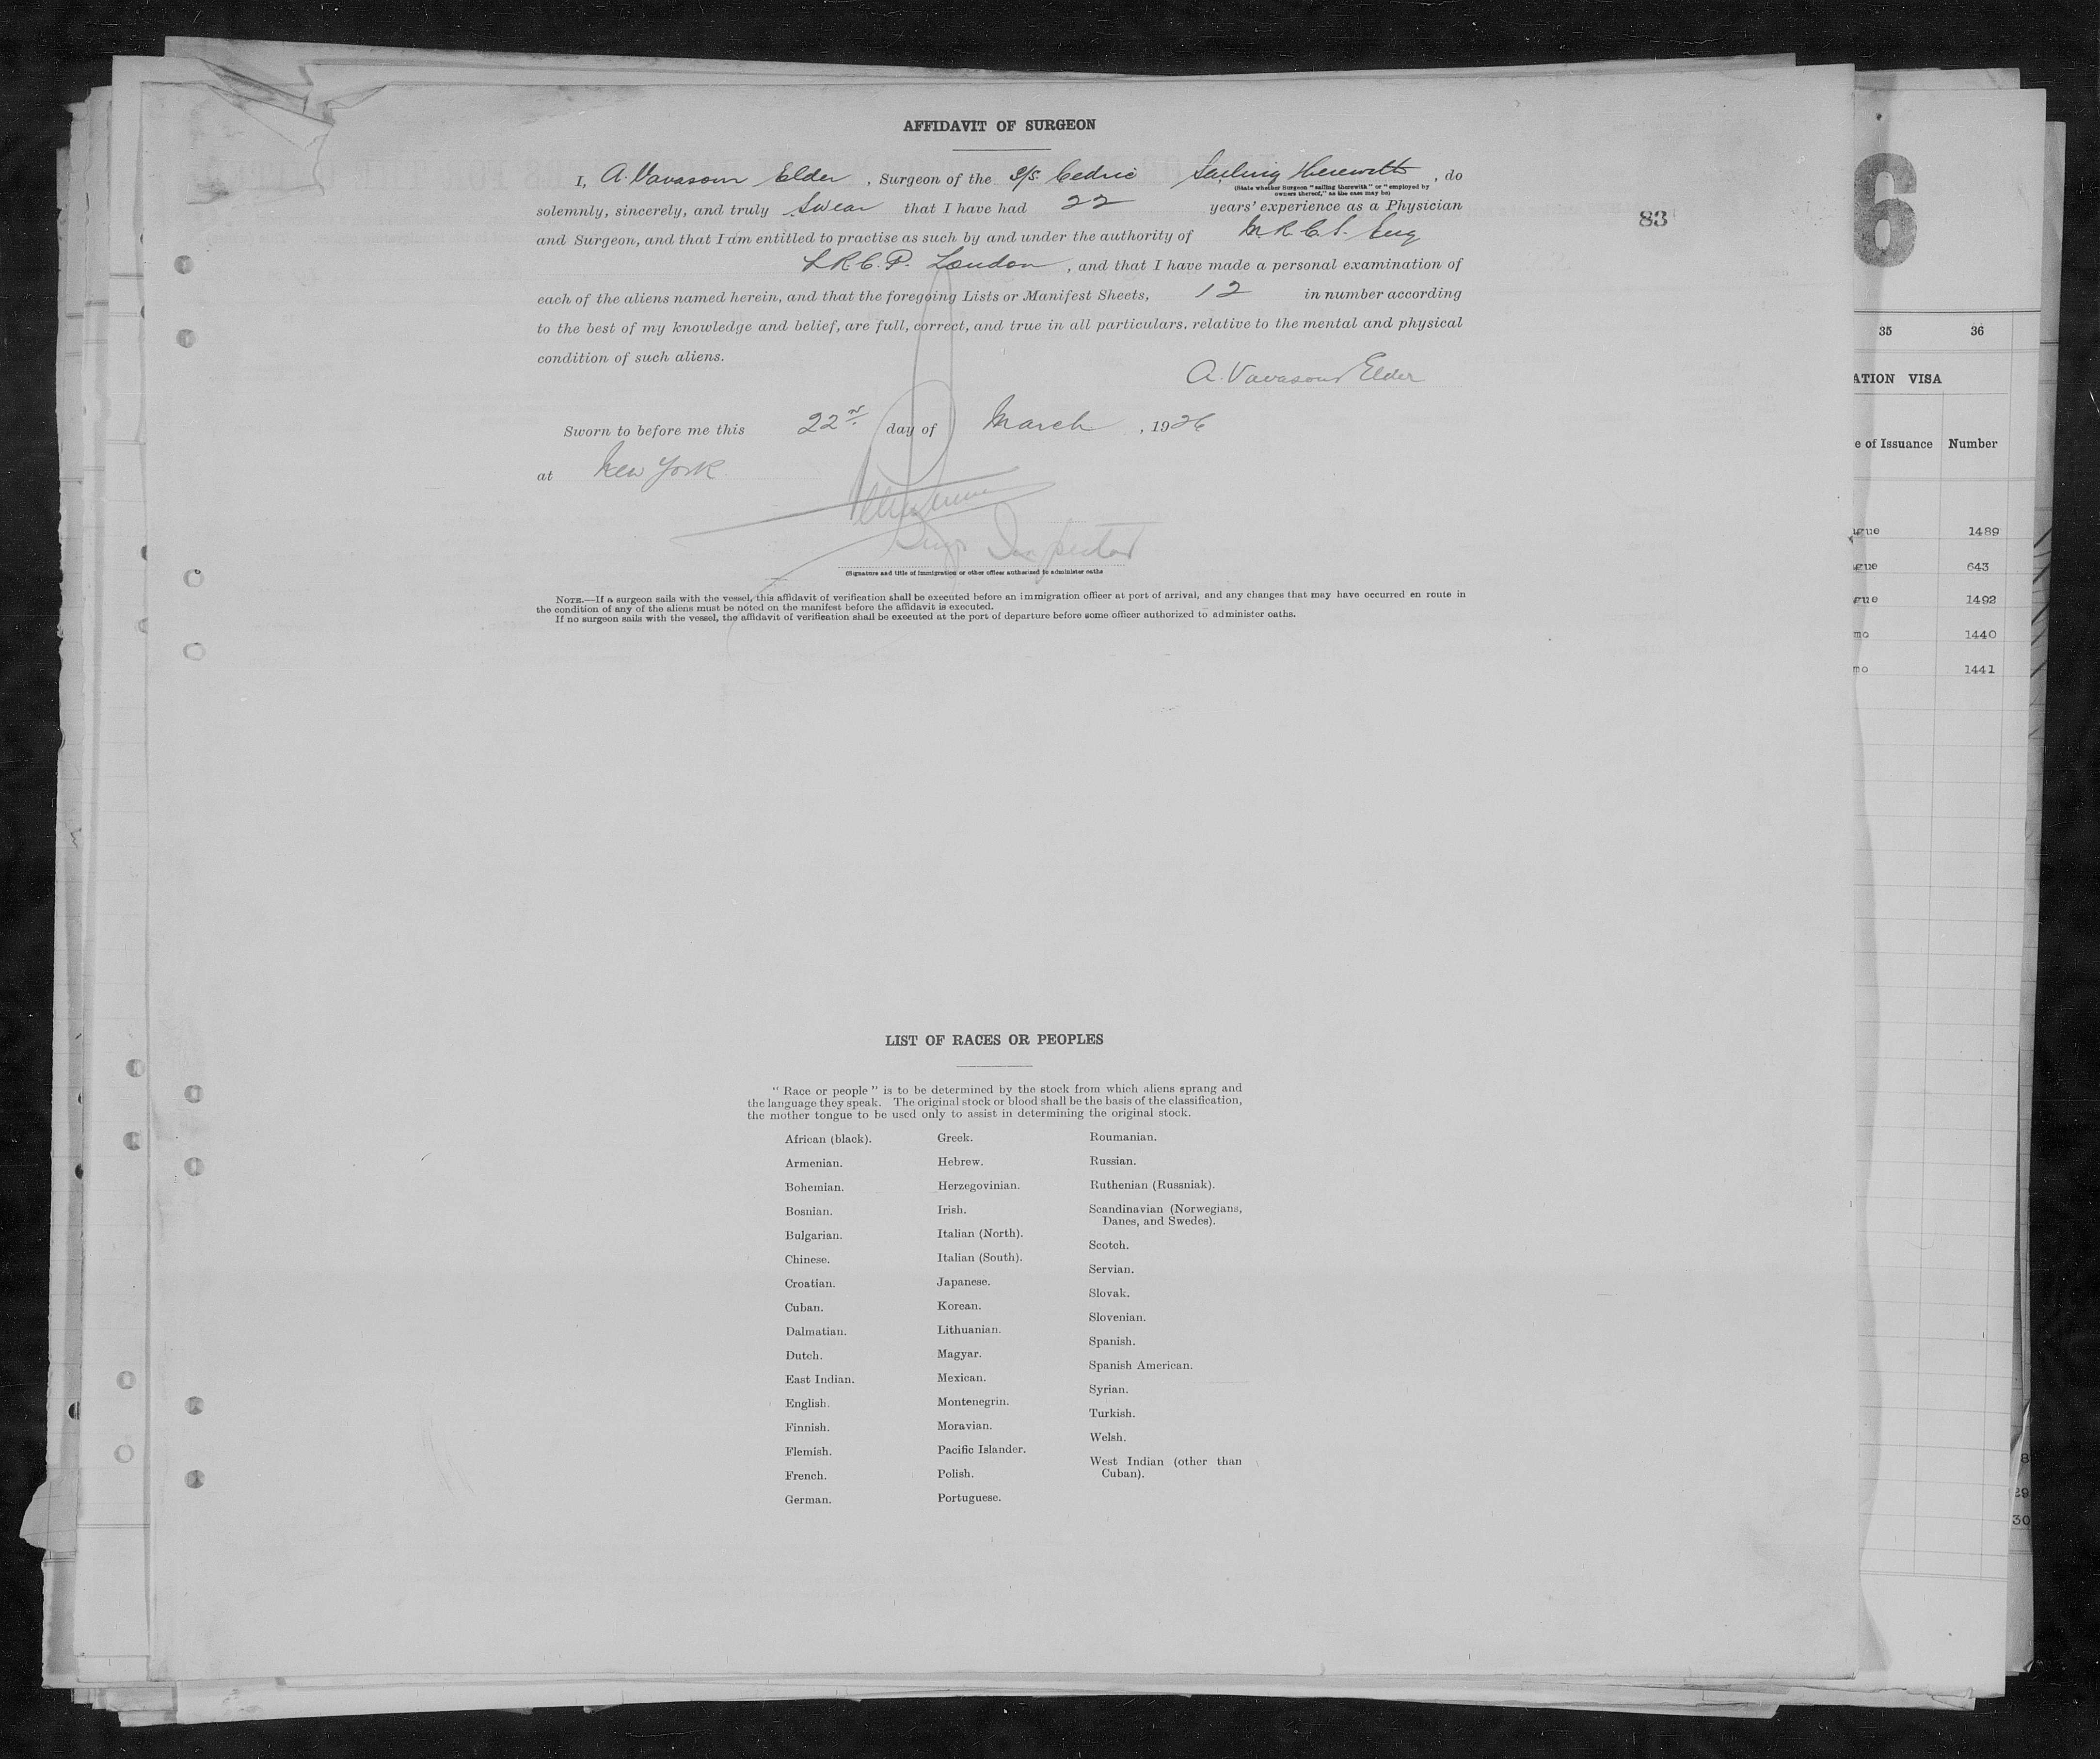 AFFIDAVIT OF SURGEON
I, A. Vavasour Elder, Surgeon of the S/S. Cedric Sailing Therewith, do
(State whether Surgeon "sailing therewith" or "employed by
owners thereof," as the case may be)
solemnly, sincerely, and truly swear that I have had 22 years' experience as a Physician
and Surgeon, and that I am entitled to practise as such by and under the authority of M.R.C.S. Eng
L R C. P. London, and that I have made a personal examination of
each of the aliens named herein, and that the foregoing Lists or Manifest Sheets, 12 in number according
to the best of my knowledge and belief, are full, correct, and true in all particulars. relative to the mental and physical
condition of such aliens.
A. Vavasour Elder
Sworn to before me this 22nd day of March, 1926
at New York
Inspector
(Signature and title of immigration or other officer authorized to administer oaths
NOTE.—If a surgeon sails with the vessel, this affidavit of verification shall be executed before an immigration officer at port of arrival, and any changes that may have occurred en route in
the condition of any of the aliens must be noted on the manifest before the affidavit is executed.
If no surgeon sails with the vessel, the affidavit of verification shall be executed at the port of departure before some officer authorized to administer oaths.
83
LIST OF RACES OR PEOPLES
"Race or people" is to be determined by the stock from which aliens sprang and
the language they speak. The original stock or blood shall be the basis of the classification,
the mother tongue to be used only to assist in determining the original stock.
African (black).
Armenian.
Bohemian.
Bosnian.
Bulgarian.
Chinese.
Croatian.
Cuban.
Dalmatian.
Dutch.
East Indian.
English.
Finnish.
Flemish.
French.
German.
Greek.
Hebrew.
Herzegovinian.
Irish.
Italian (North).
Italian (South).
Japanese.
Korean.
Lithuanian.
Magyar.
Mexican.
Montenegrin.
Moravian.
Pacific Islander.
Polish.
Portuguese.
Roumanian.
Russian.
Ruthenian (Russniak).
Scandinavian (Norwegians,
Danes, and Swedes).
Scotch.
Servian.
Slovak.
Slovenian.
Spanish.
Spanish American.
Syrian.
Turkish.
Welsh.
West Indian (other than
Cuban).
6
35 36
ATION VISA
e of Issuance Number
ague 1489
ague 643
gue 1492
mo 1440
mo 1441
8
29
30